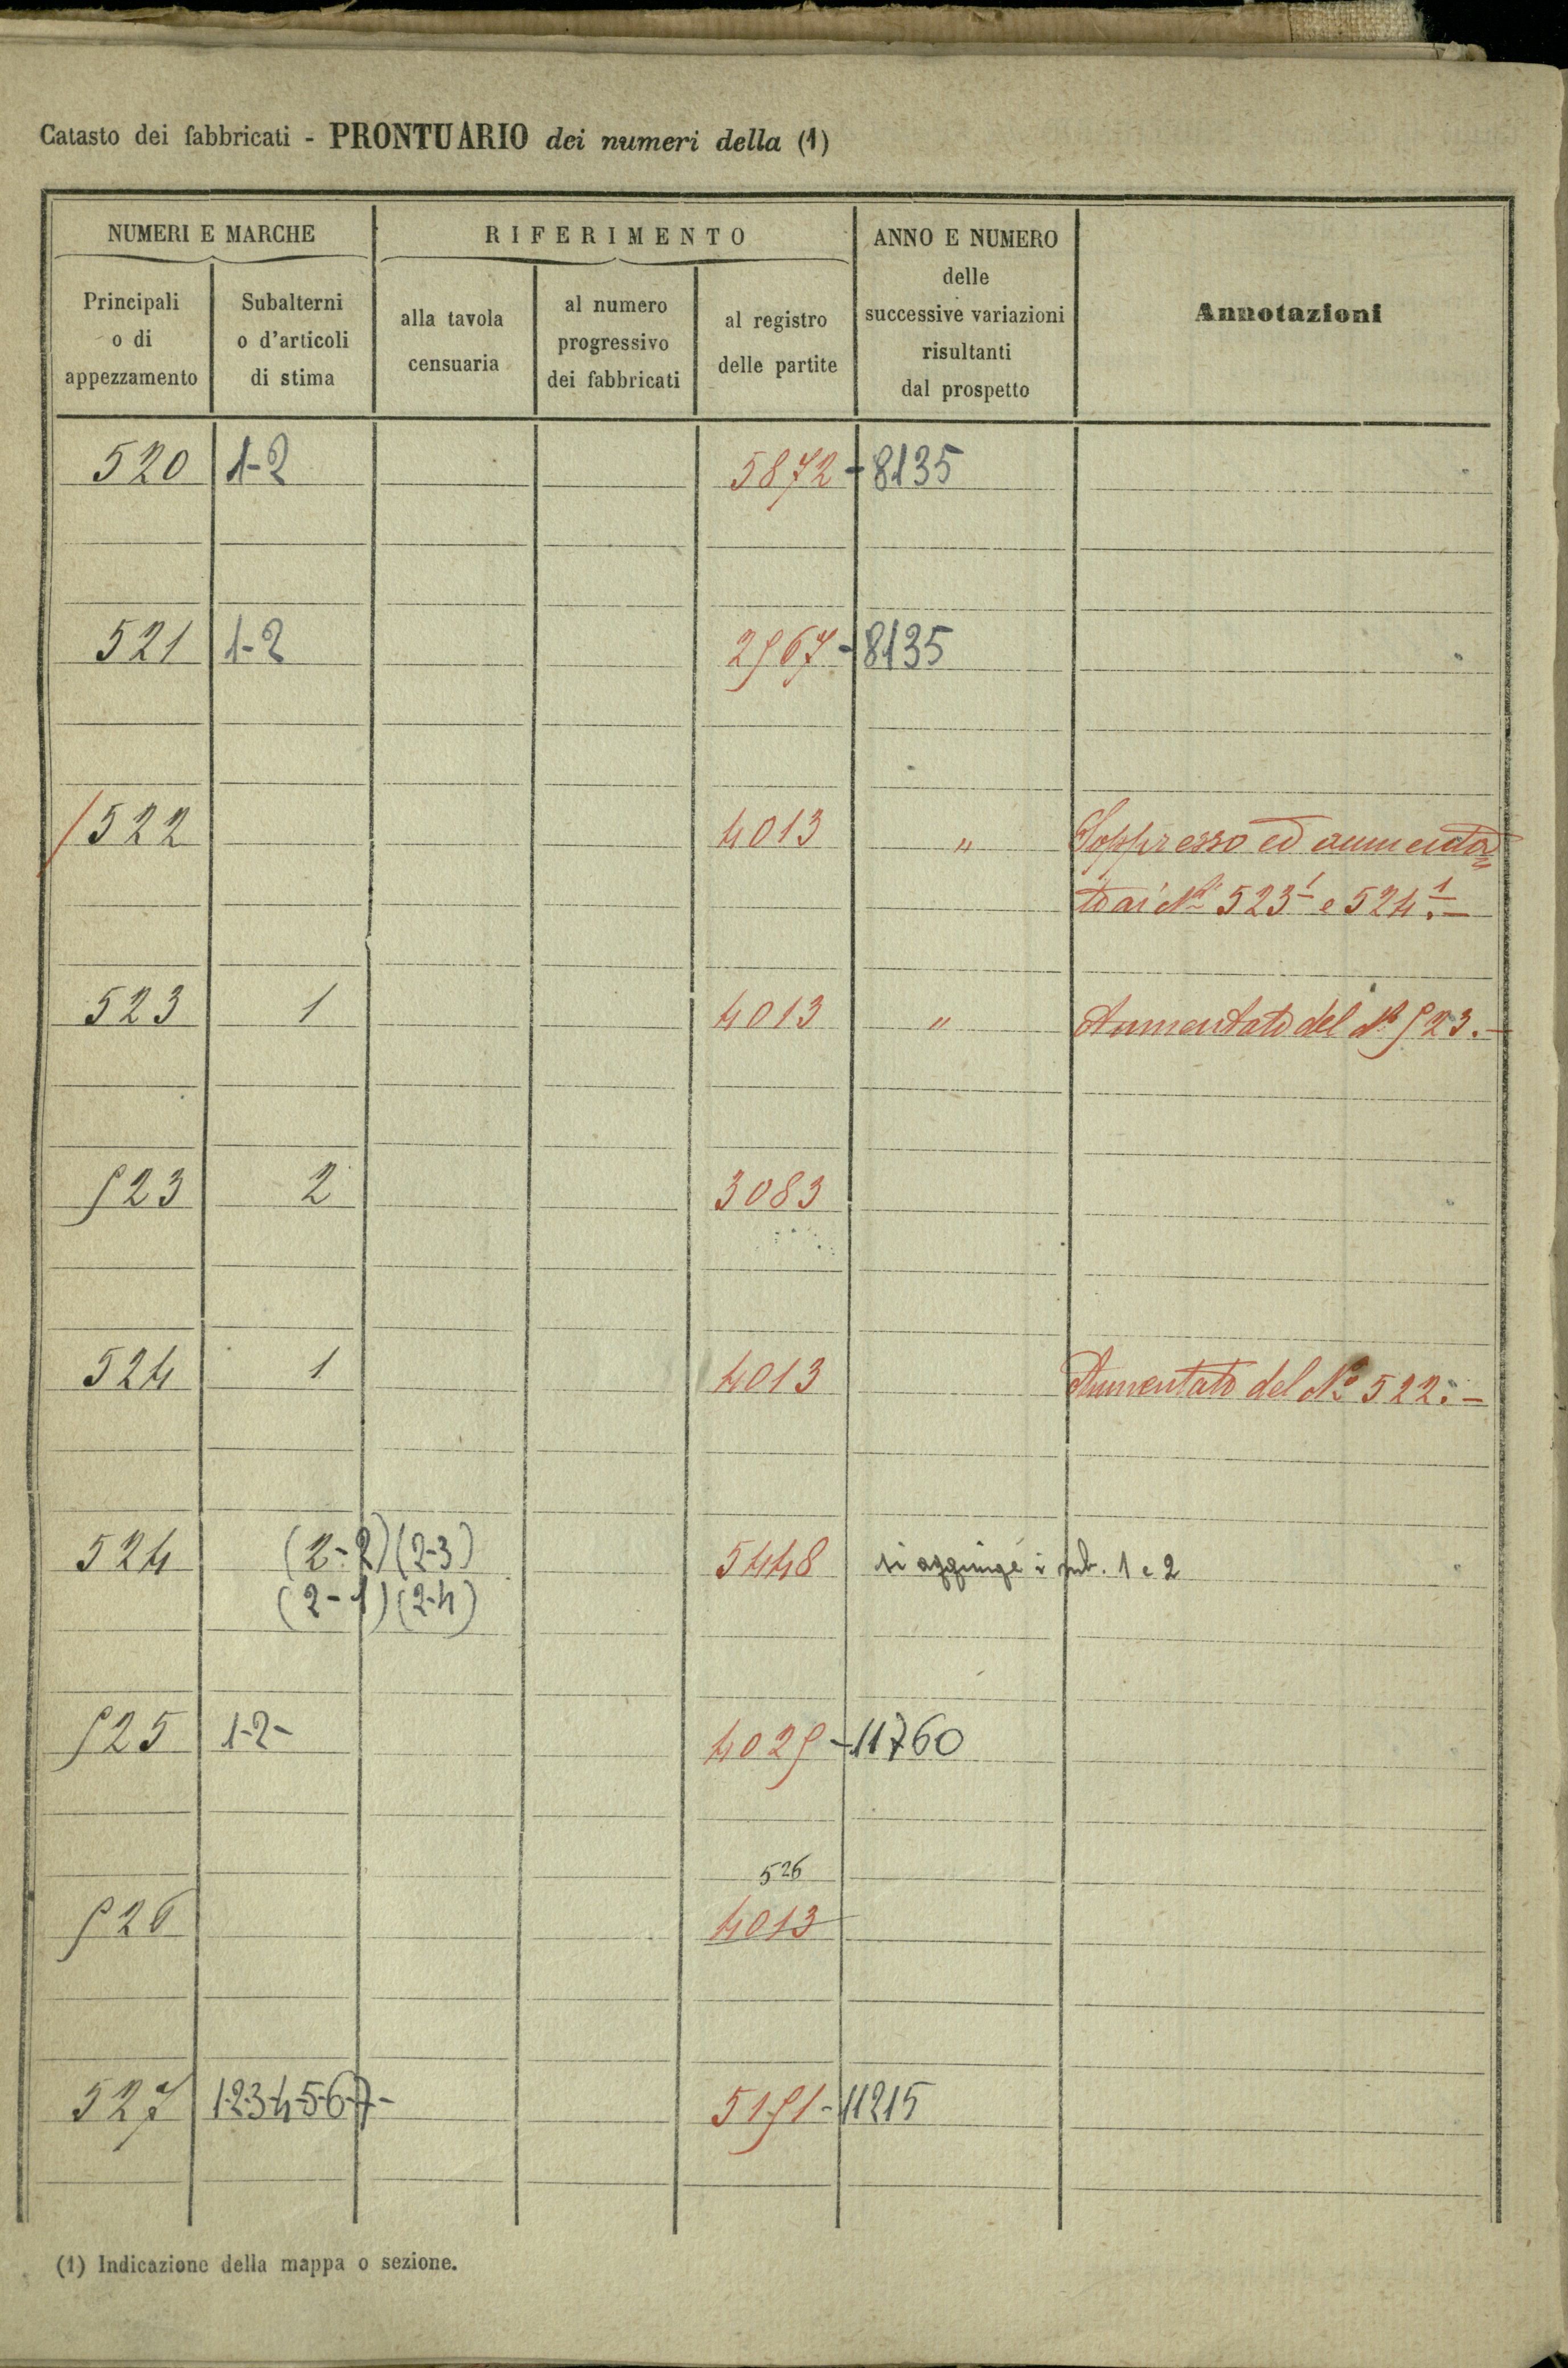 Catasto dei fabbricati - PRONTUARIO dei numeri della (1)
NUMERI E MARCHE
RIFERIMENTO
ANNO E NUMERO
delle
successive variazioni
risultanti
dal prospetto
Annotazioni
Principali
o di
appezzamento
Subalterni
o d'articoli
di stima
alla tavola
censuaria
al numero
progressivo
dei fabbricati
al registro
delle partite
520 1-2 5872 - 8135
521 1-2 2567 - 8135
522 4013 " Soppresso ed aumenta=
to ai Ni 523 1 e 524 1.-
523 1 4013 " Aumentato del No 523.-
523 2 3083
524 1 4013 Aumentato del No 522.-
524 (2-2) (2-3) 5448 si aggiunge i sub. 1 e 2
(2-1) (2-4)
525 1-2- 4025 - 11760
526
526 4013
527 1-2-3-4-5-6-7- 5151 - 11215
(1) Indicazione della mappa o sezione.